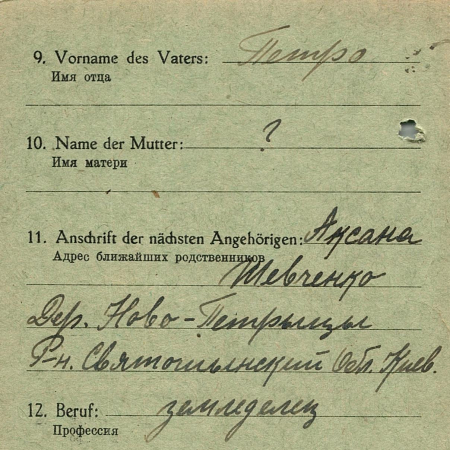 9. Vorname des Vaters: Петро
Имя отца
10. Name der Mutter: ?
Имя матери
11. Anschrift der nächsten Angehörigen: Аксана
Адрес ближайших родственников
Шевченко
Дер. Ново-Петрыцы
Р-н. Святошынский Обл. Киев.
12. Beruf: земледелец
Профессия